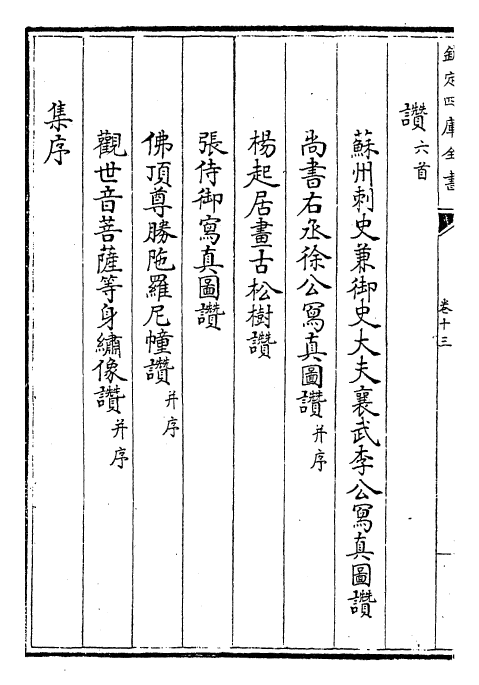 欽定四庫全書
卷十三
讚六首
蘇州刺史兼御史大夫襄武李公寫真圖讚
尚書右丞徐公寫真圖讚并序
楊起居畫古松樹讚
張侍御寫真圖讚
佛頂尊勝陁羅尼幢讚并序
觀世音菩薩等身繡像讚并序
集序